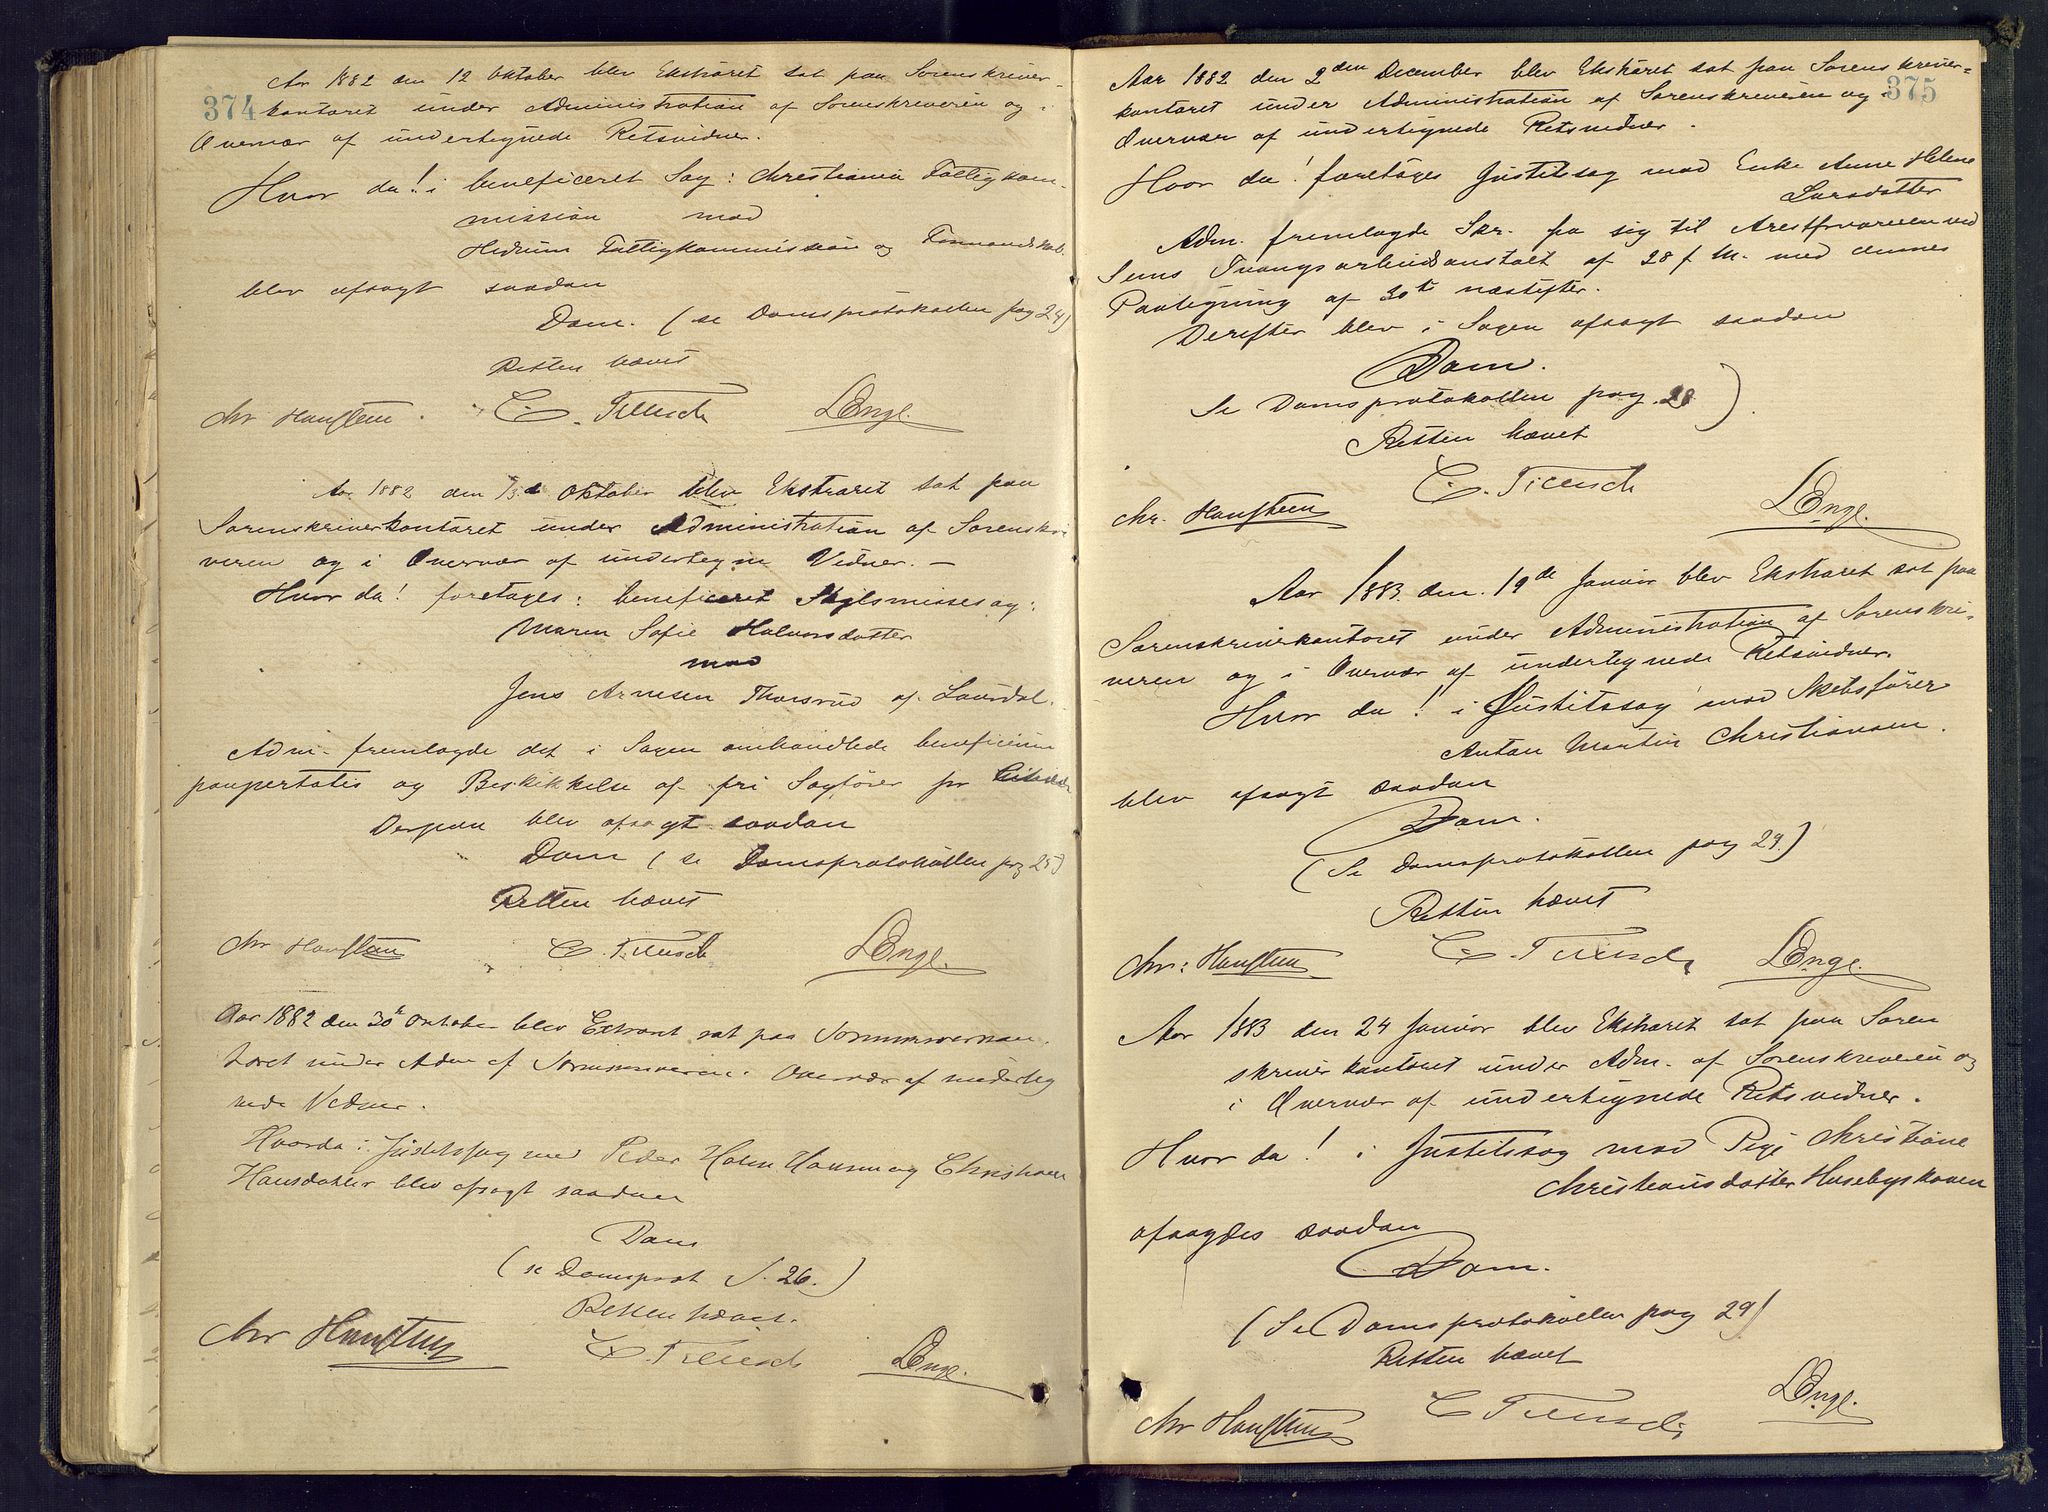 374
Aar 1882 den 12 Oktober blev Ekstraret sat paa Sorenskriver-
kontoret under Administration af Sorenskriveren og i
Overvær af undertegnede Retsvidner.
Hvor da! i beneficeret Sag: Christiania Fattigkom-
mission mod
Hedrum Fattigkommission og Formandskab.
blev afsagt saadan
Dom. (se Domsprotokollen pag 24)
Retten hævet
Chr Hanssteen. C. Trensch LEngl.
Aar 1882 den 13de Oktober blev Ekstraret sat paa
Sorenskriverkontoret under Administration af Sorenskri
veren og i Overvær af undertegne Vidner. —
Hvor da! foretages: beneficeret Skilsmissesag:
Maren Sofie Halvorsdatter
mod
Jens Arnesen Thorsrud af Laurdal.
Adm. fremlagde det i Sagen omhandlede beneficium
paupertatis og Beskikkelse af fri Sagfører for
Derpaa blev afsagt saadan
Dom (se Domsprotokollen pag 25)
Retten hævet
Chr Hanssteen C. Trensch LEngl.
Aar 1882 den 30te Oktober blev Extraret sat paa Sorenskriverkon-
toret under Adm af Sorenskriveren i Overvær af underteg
nede Vidner.
Hvorda i Justitssag mod Peder Hansen og Christiane
Hansdatter blev afsagt saadan
Dom
(se Domsprot S. 26.)
Retten hævet.
Chr Hanssteen C. Trensch LEngl.
375
Aar 1882 den 2den December blev Ekstraret sat paa Sorenskriver=
kontoret under Administration af Sorenskriveren og i
Overvær af undertegnede Retsvidner.
Hvor da! foretages Justitssag mod Enke Anne Helene
Larsdatter
Adm. fremlagde Skr. fra sig til Arestforvareren ved
Sems Tvangsarbeidsanstalt af 28 f. M. med dennes
Paategning af 30te næstefter.
Derefter blev i Sagen afsagt saadan
Dom.
Se Domsprotokollen pag. 28)
Retten hævet
Chr. Hanssteen C. Trensch LEngl.
Aar 1883 den 19de Januar blev Ekstraret sat paa
Sorenskriverkontoret under Administration af Sorenskri-
veren og i Overvær af undertegnede Retsvidner.
Hvor da! i Justitssag mod Skibsfører
Anton Martin Christiansen.
blev afsagt saadan
Dom.
(Se Domsprotokollen pag 29.)
Retten hævet
Chr. Hanssteen C. Trensch LEngl.
Aar 1883 den 24 Januar blev Ekstraret sat paa Soren
skriverkontoret under Adm. af Sorenskriveren og
i Overvær af undertegnede Retsvidner.
Hvor da! i Justitssag mod Pige Christine
Christiansdatter Husebyskoven
afsagdes saadan
Dom.
(Se Domsprotokollen pag 29)
Retten hævet
Chr Hanssteen C Trensch LEngl.